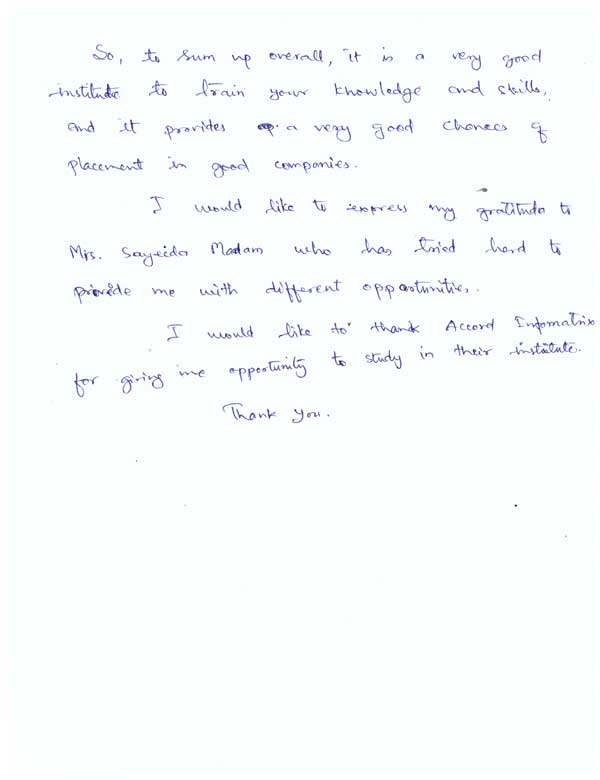 So, to sum up overall, it is a very good
institute to train your knowledge and skills,
and it provides a very good chances of
placement in good companies.
I would like to express my gratitude to
Mrs. Sayeeda Madam who has tried hard to
provide me with different opportunities.
I would like to thank Accord Infomatrix
for giving me opportunity to study in their institute.
Thank You.